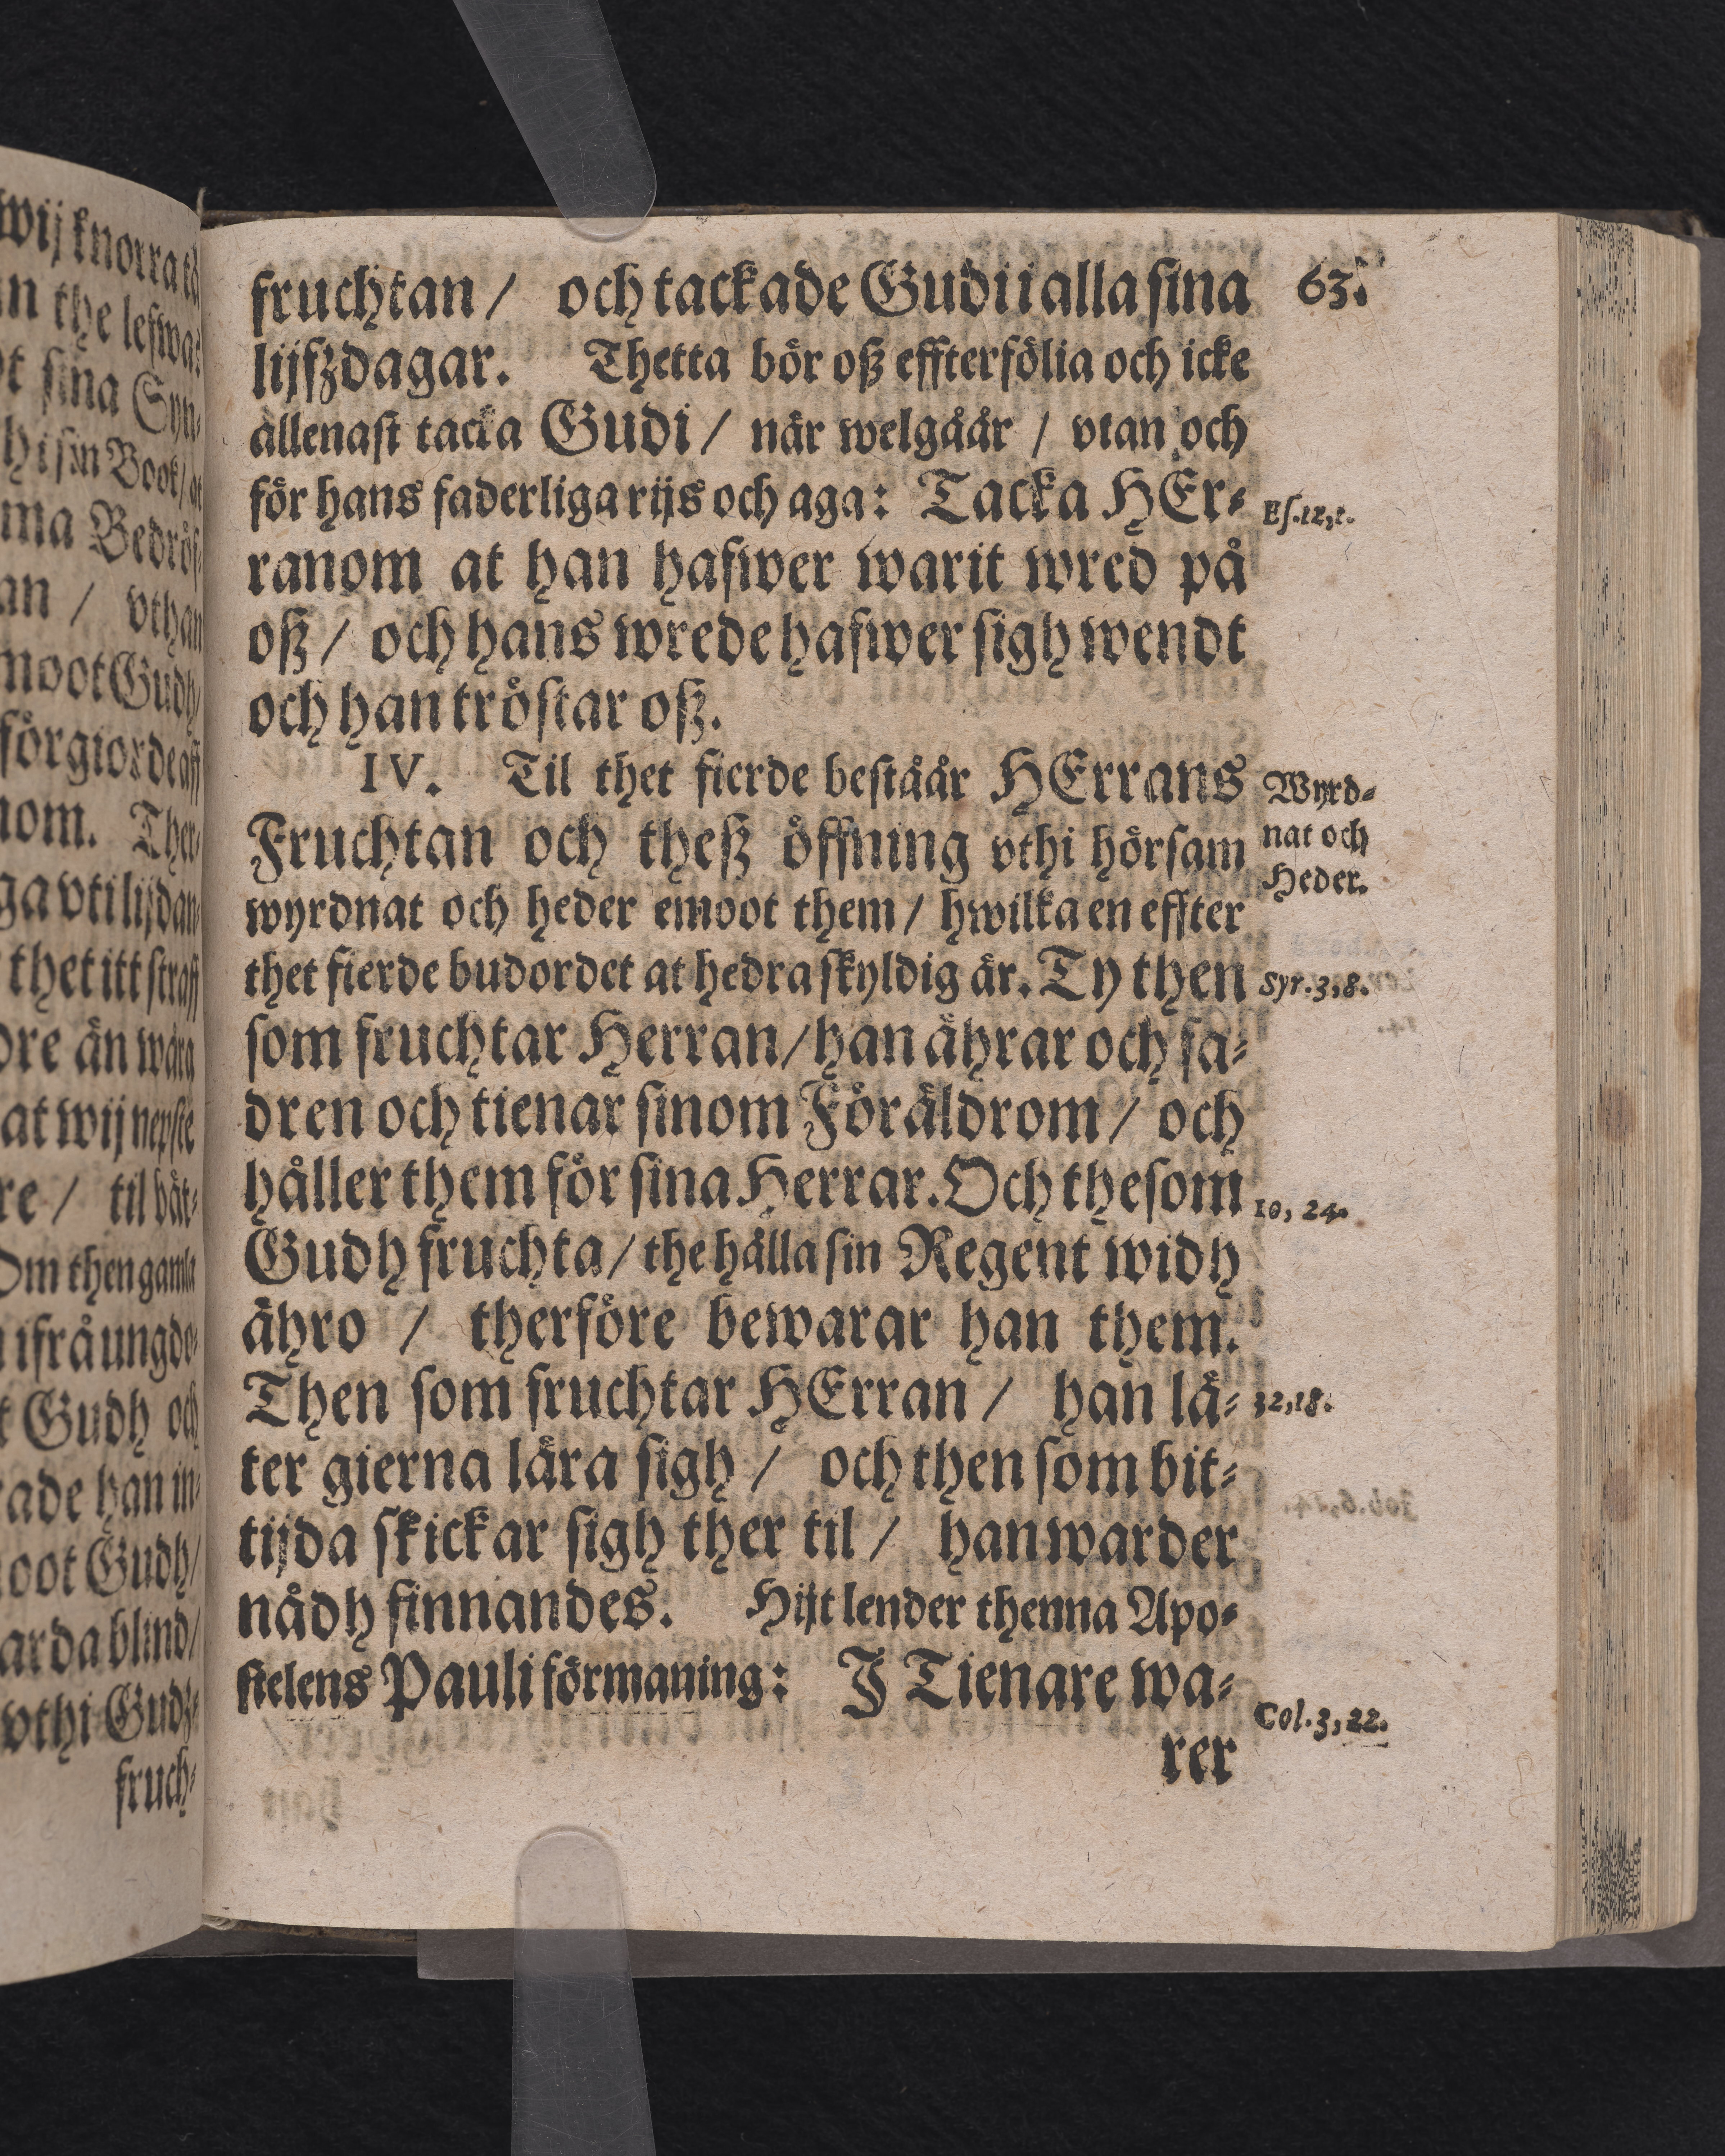 63.
fruchtan / och tackade Gudi i alla sina
lijfzdagar. Thetta bör oß effterfölia och icke
allenast tacka Gudi / när welgåår / vtan och
för hans faderliga rijs och aga: Tacka HEr-
Es. 12, 1.
ranom at han hafwer warit wred på
oß / och hans wrede hafwer sigh wendt
och han tröstar oß.
IV. Til thet fierde beståår HErrans
Wyrd-
nat och
Heder.
Fruchtan och theß öffning vthi hörsam
wyrdnat och heder emoot them / hwilka en effter
thet fierde budordet at hedra skyldig är. Ty then
Syr. 3, 8.
som fruchtar Herran / han ährar och fa-
dren och tienar sinom Föräldrom / och
håller them för sina Herrar. Och the som
10, 24.
Gudh fruchta / the hålla sin Regent widh
ähro / therföre bewarar han them.
Then som fruchtar HErran / han lå-
32, 18.
ter gierna lära sigh / och then som bit-
tijda skickar sigh ther til / han warder
nådh finnandes. Hijt lender thenna Apo-
stelens Pauli förmaning: J Tienare wa-
Col. 3, 22.
rer